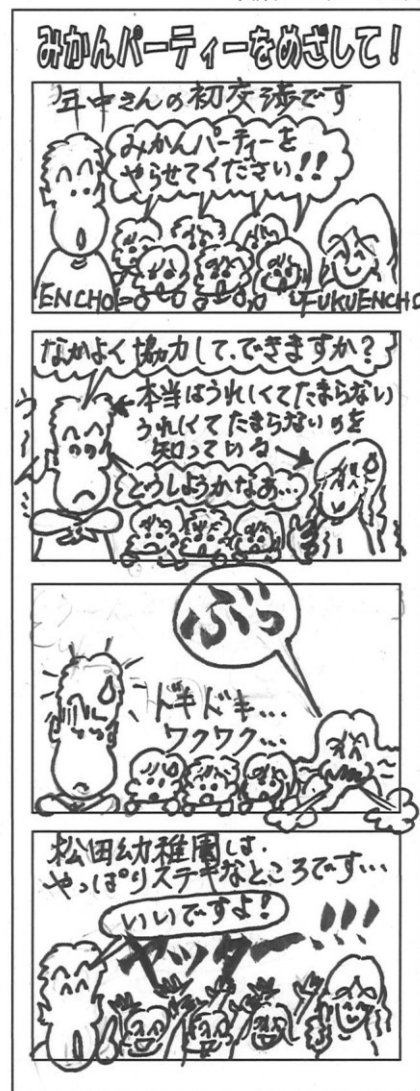 みかんパーティーをめざして!
年中さんの初交渉です
みかんパーティーを
やらせてください!!
ENCHO
FUKUENCHO
なかよく協力して、できますか?
うーん…
本当はうれしくてたまらない
うれしくてたまらないのを
知っている
どうしようかなあ…
ぷっ
ドキドキ…
ワクワク…
松田幼稚園は、
やっぱりステキなところです…
いいですよ!
ヤッター!!!